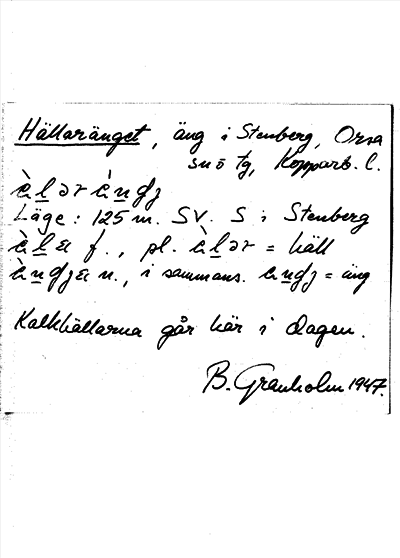 Hällaränget, äng i Stenberg, Orsa
sn o tg, Kopparb. l.
Läge: 125 m. SV. S i Stenberg
f., pl. = häll
n., i sammans. = äng
Kalkhällarna går här i dagen.
B. Granholm 1947.